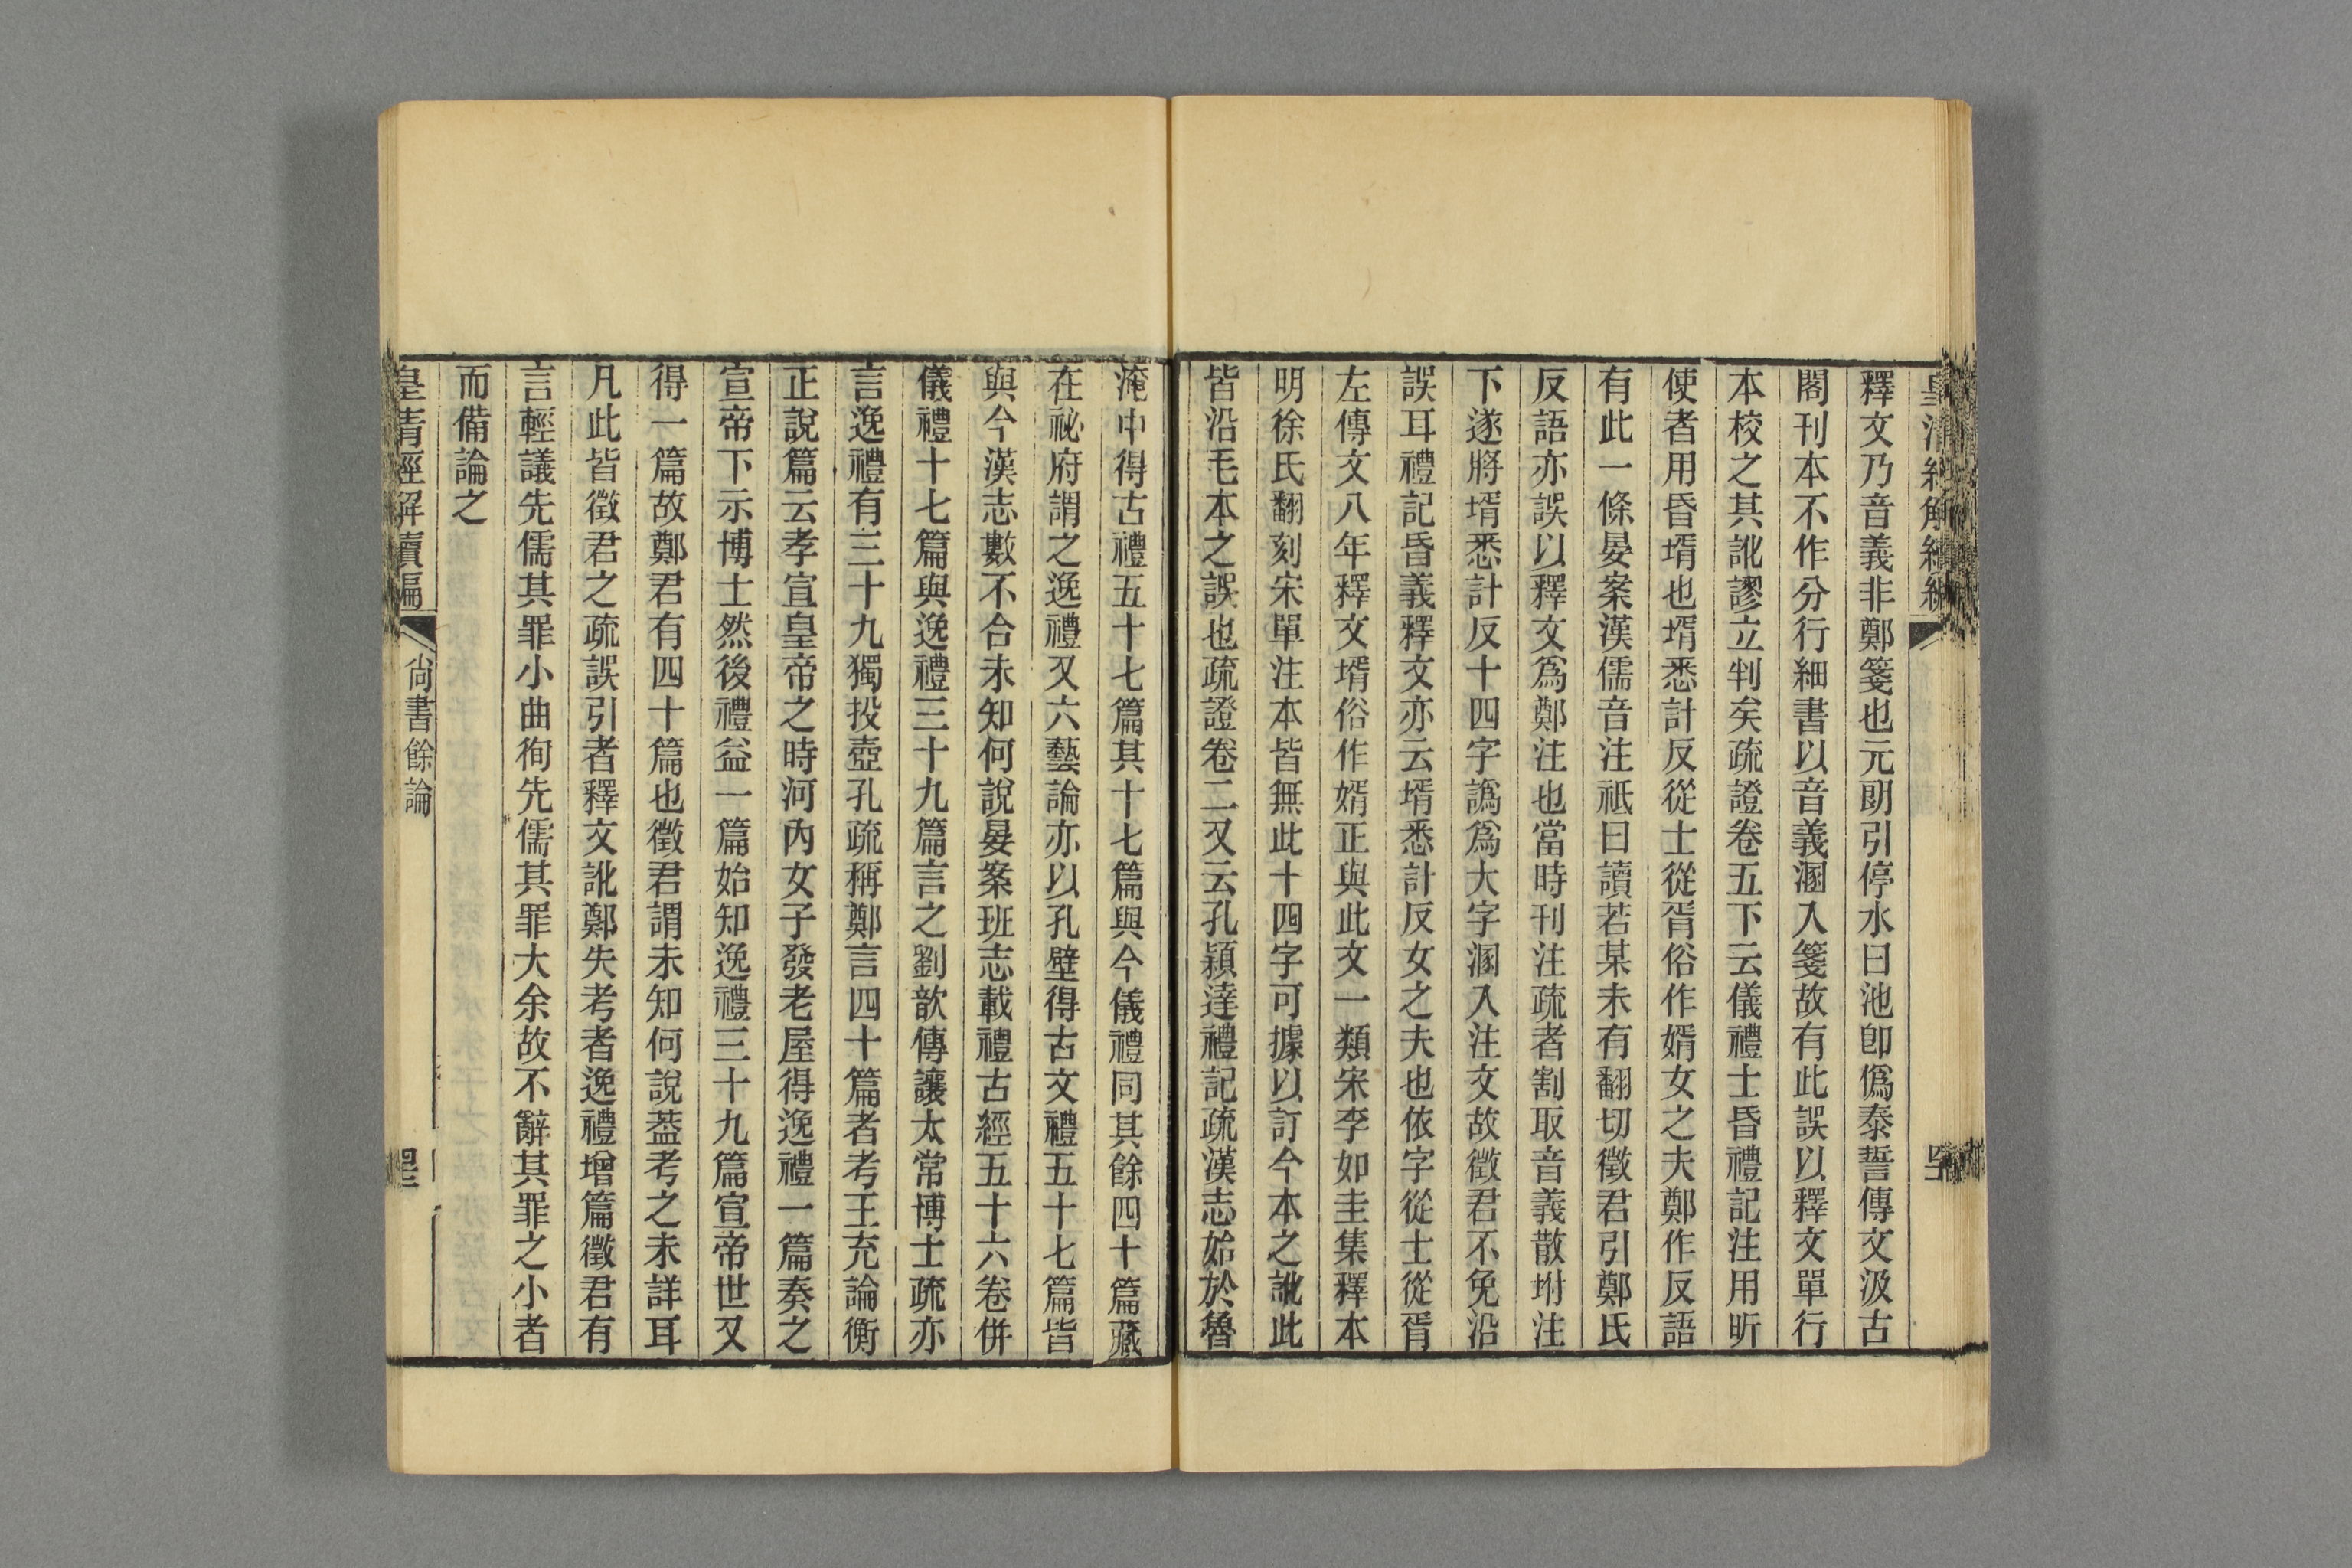 釋文乃音義非鄭箋也元朗引停水曰池卽僞泰誓傳文汲古
閣刊本不作分行細書以音義溷入箋故有此誤以釋文單行
本校之其訛謬立判矣疏證卷五下云儀禮士昏禮記注用昕
使者用昏壻也壻悉計反從士從胥俗作婿女之夫鄭作反語
有此一條晏案漢儒音注祗曰讀若某未有翻切徵君引鄭氏
反語亦誤以釋文爲鄭注也當時刊注疏者割取音義散坿注
下遂將壻悉計反十四字譌爲大字溷入注文故徵君不免沿
誤耳禮記昏義釋文亦云壻悉計反女之夫也依字從士從胥
左傳文八年釋文壻俗作婿正與此文一類宋李如圭集釋本
明徐氏翻刻宋單注本皆無此十四字可據以訂今本之訛此
皆沿毛本之誤也疏證卷二又云孔穎達禮記疏漢志始於魯
淹中得古禮五十七篇其十七篇與今儀禮同其餘四十篇藏
在祕府謂之逸禮又六藝論亦以孔壁得古文禮五十七篇皆
與今漢志數不合未知何說晏案班志載禮古經五十六卷併
儀禮十七篇與逸禮三十九篇言之劉歆傳讓太常博士疏亦
言逸禮有三十九獨投壺孔疏稱鄭言四十篇者考王充論衡
正說篇云孝宣皇帝之時河內女子發老屋得逸禮一篇奏之
宣帝下示博士然後禮益一篇始知逸禮三十九篇宣帝世又
得一篇故鄭君有四十篇也徵君謂未知何說葢考之未詳耳
凡此皆徵君之疏誤引者釋文訛鄭失考者逸禮增篇徵君有
言輕議先儒其罪小曲徇先儒其罪大余故不辭其罪之小者
而備論之
皇清經解續編
尙書餘論